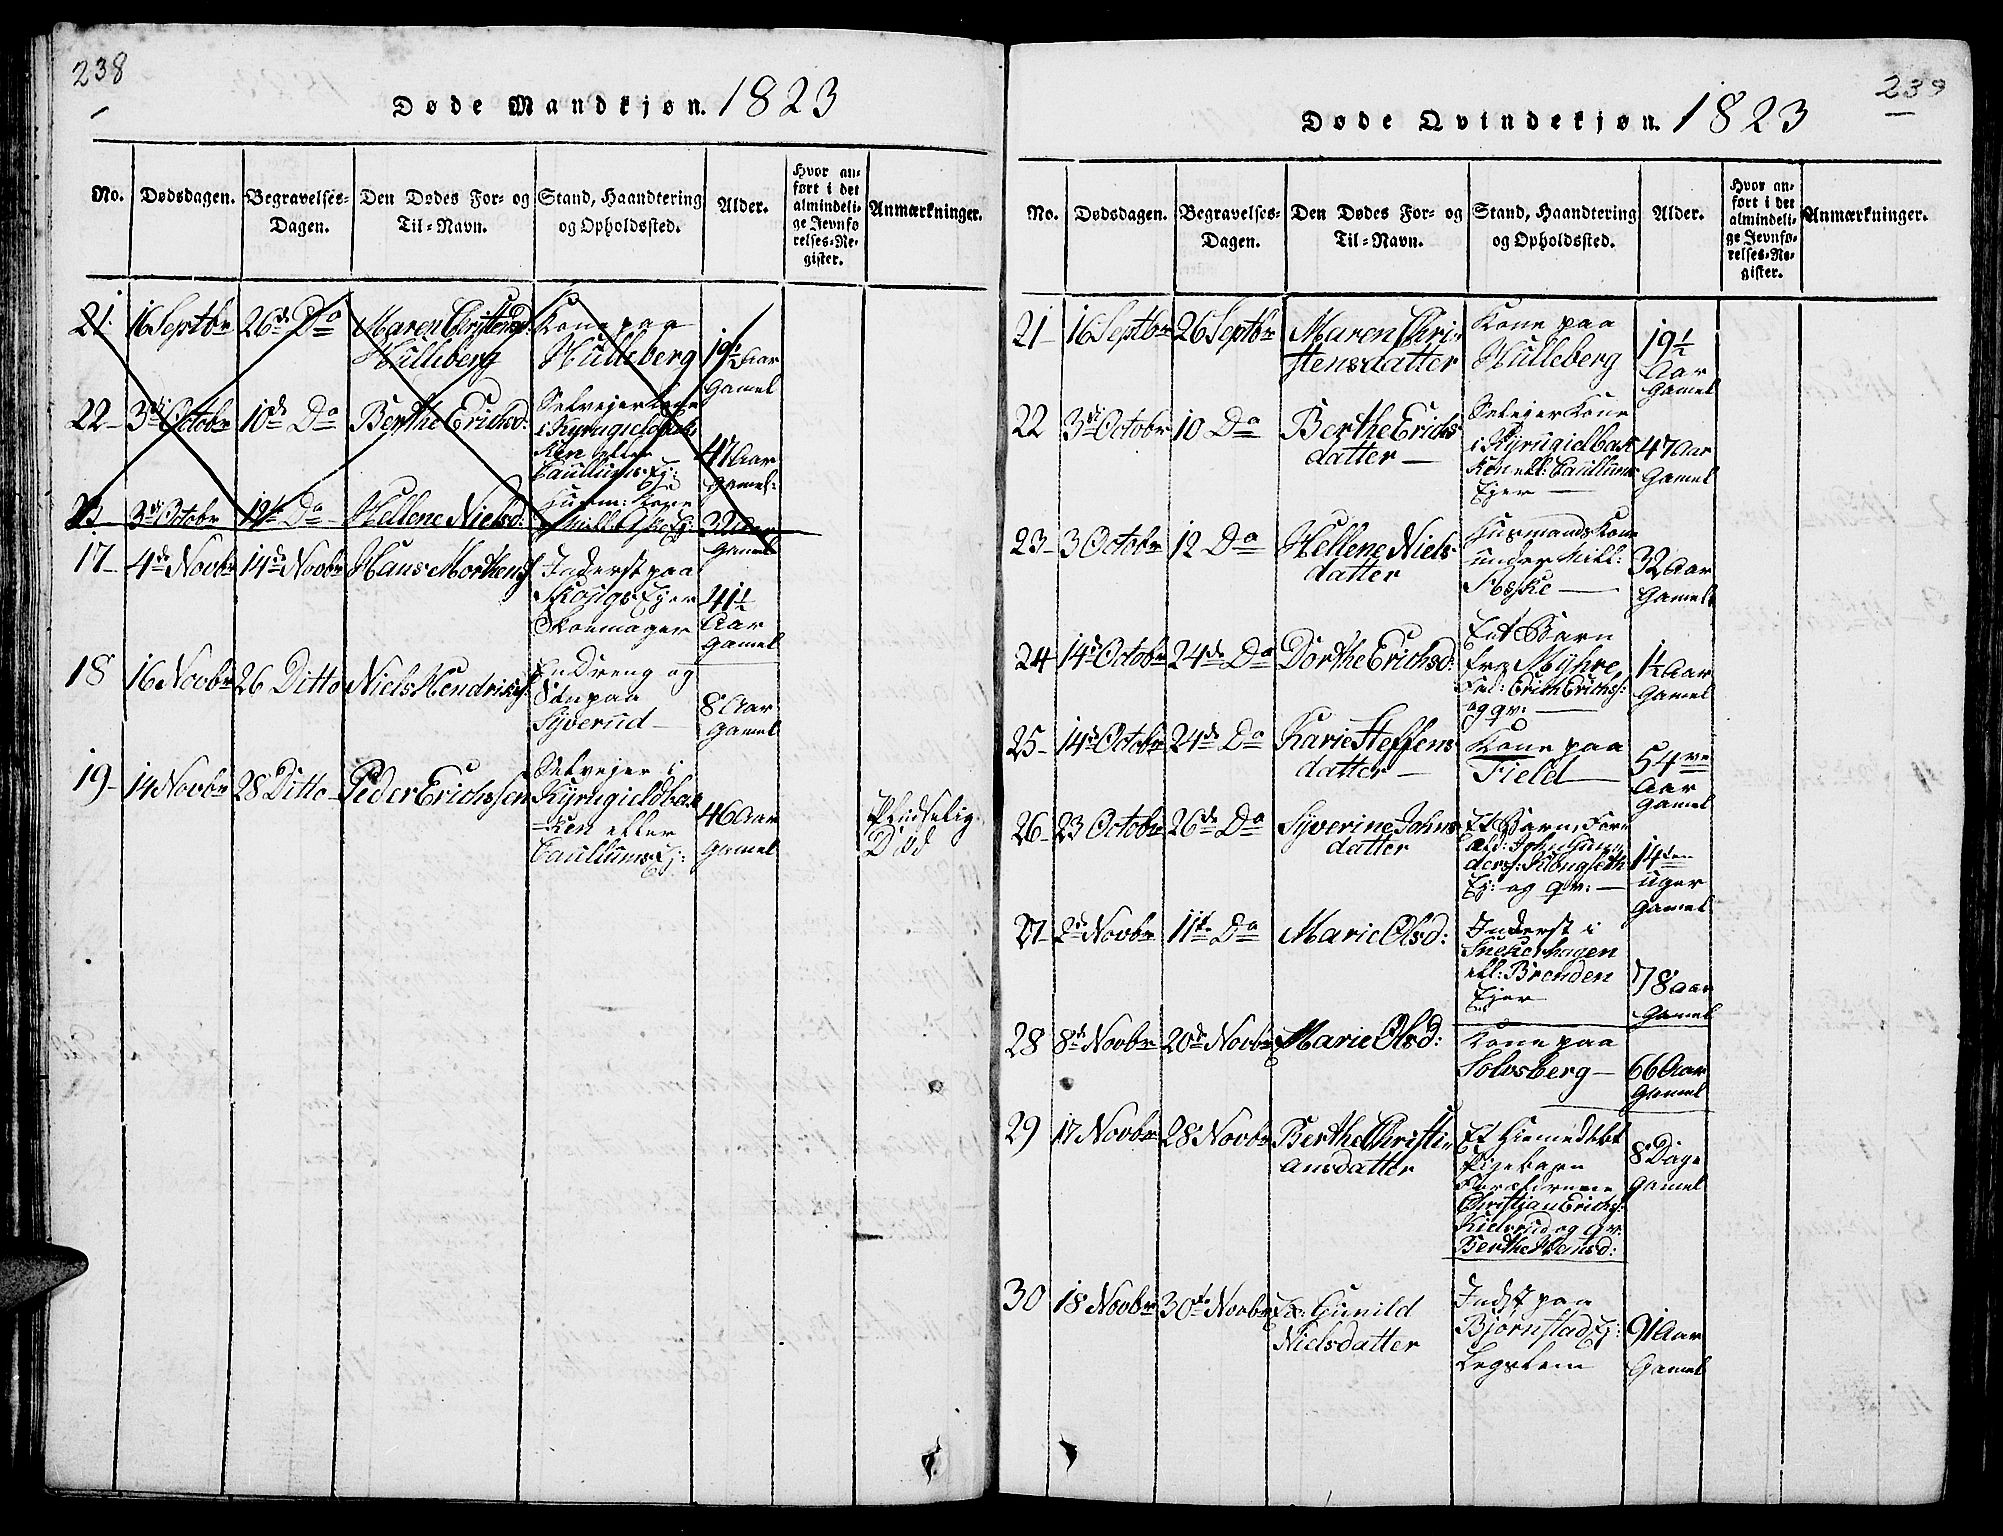 238
Døde Mandkjøn. 1823
No.
Dødsdagen.
Begravelses-
Dagen.
Den Dødes For- og
Til-Navn.
Stand, Haandtering
og Opholdssted.
Alder.
Hvor an-
ført i det
almindeli-
ge Jevnfø
relses-Re-
gister.
Anmærkninger.
21. 16 Septbr 26de Do Maren Christensd: Kone paa
Hulleberg Hulleberg 19½ Aar
Gamel
22 3di Octobr 10de Do Berthe Erichsd: Selvejer Kone
i Kyrugieldbak
ken efter
Caullums Ej: 47 Aar
Gamel:
23 3di Octobr 12te Do Hellene Nielsd: Husm: Kone
32 Aar
Gamel
17 4de Novbr 14de Novbr Hans Morthens: Inderst paa
Skougs Ejer
Skoemager 41½
Aar
Gamel
18 16 Novbr 26 Ditto Niels Hendrichs: En Dreng og
Søn paa
Syverud 8 Aar
Gamel
19 14 Novbr 28 Ditto Peder Erichssen Selvejer i
Kyrugieldbak
ken efter
Caullums Ej: 46 Aar
Gamel
Pludselig
Død
239
Døde Qvindekjøn. 1823
No.
Dødsdagen.
Begravelses-
Dagen.
Den Dødes For- og
Til-Navn.
Stand, Haandtering
og Opholdssted.
Alder.
Hvor an-
ført i det
almindeli-
ge Jevnfø-
relses-Re-
gister.
Anmærkninger.
21 16 Septbr 26 Septbr Maren Chri-
stensdatter Kone paa
Hulleberg 19½
Aar
Gamel
22 3di Octobr 10 Do Berthe Erichs
datter Selvejer Kone
i Kyrugieldbak
ken ell: Caullums
Ejer 47 Aar
Gamel
23 3 Octobr 12 Do Hellene Niels
datter Husmands Kone
under Mill:
Aske 32 Aar
Gamel
24 14de Octobr 24de Do Dorthe Erichsd: Eet Barn
fra Myhre
Fad: Erich Erichs:
og qv: 1½ Aar
Gamel
25 14de Octobr 24de Do Karie Steffens
datter Kone paa
Field 54re
Aar
Gamel
26 23 Octobr 26de Do Syverine Johns
datter Et Barn, For
æld: John Gun
ders: Klougseth
Ej: og qv: 14ten
uger
Gamel
27 2de Novbr 11te Do Marie Olsd: Inderst i
Snekerhagen
ell: Brenden
Ejer 78 Aar
Gamel
28 8de Novbr 20de Novbr Marie Olsd: Kone paa
Solvsberg 66 Aar
Gamel
29 17 Novbr 28 Novbr Berthe Christi-
ansdatter Et Hiemedøbt
Pigebarn
Forældrene
Christian Erichs:
Kielsrud og qv:
Berthe Hansd: 8 Dage
Gamel
30 18 Novbr 30te Novbr Gunild
Nielsdatter Indst paa
Bjørnstad Ej:
Legslem 91 Aar
Gamel